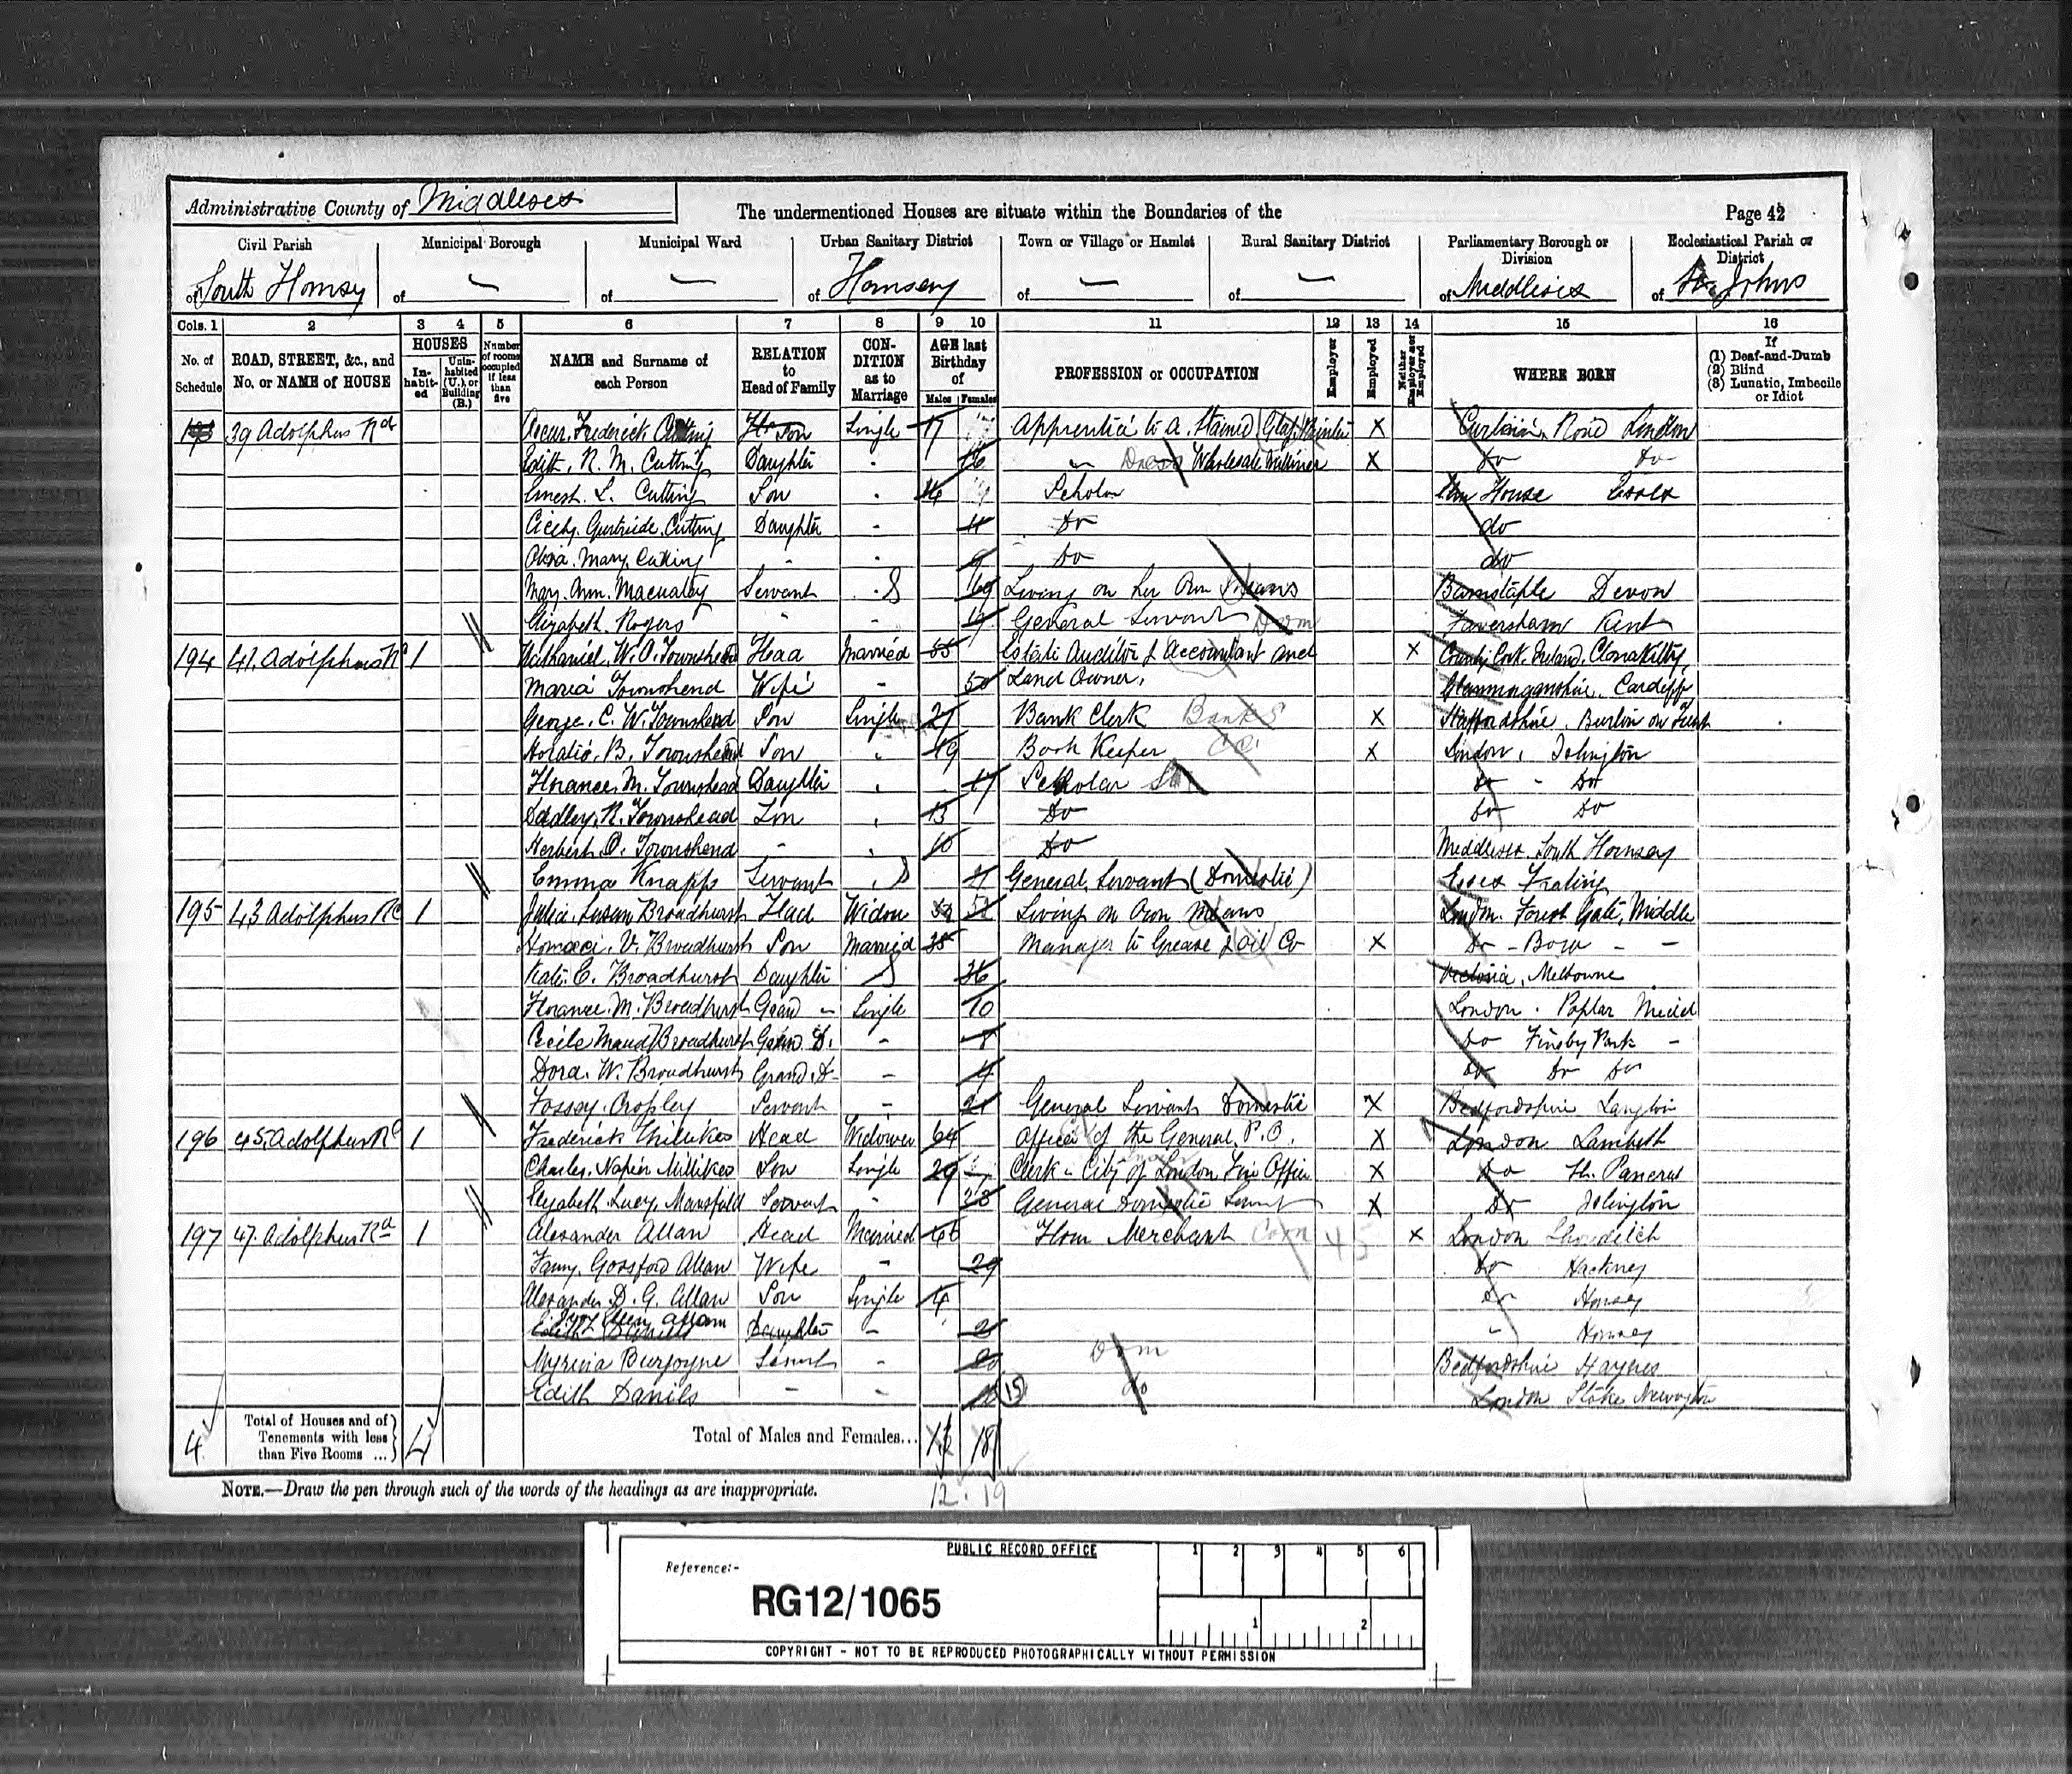 Administrative County of Middlesex
The undermentioned Houses are situate within the Boundaries of the
Page 42
Civil Parish of South Hornsey
Municipal Borough of —
Municipal Ward of —
Urban Sanitary District of Hornsey
Town or Village or Hamlet of —
Rural Sanitary District of —
Parliamentary Borough or Division of Middlesex
Ecclesiastical Parish or District of St Johns
Cols. 1 2 3 4 5 6 7 8 9 10 11 12 13 14 15 16
No. of Schedule
ROAD, STREET, &c., and No. or NAME of HOUSE
HOUSES
Inhabited
Uninhabited (U.), or Building (B.)
Number of rooms occupied if less than five
NAME and Surname of each Person
RELATION to Head of Family
CONDITION as to Marriage
AGE last Birthday of
Males Females
PROFESSION or OCCUPATION
Employer
Employed
Neither Employer nor Employed
WHERE BORN
If (1) Deaf-and-Dumb (2) Blind (3) Lunatic, Imbecile or Idiot
193 39 Adolphus Rd Oscur. Frederick Cutting Son Single 17 Apprentice to a Stained Glass Painter X Curtain Road London
Edith. R. M. Cutting Daughter 16 Wholesale Milliner X Do Do
Ernest. L. Cutting Son Scholar House Essex
Cicely Gertrude Cutting Daughter - 11 Do do
Mary Cutting - 9 Do do
Mary. Ann. Macualey Servant S 69 Living on her Own Means Barnstaple Devon
Elizabeth. Rogers - 19 General Servant Dom Faversham Kent
194 41. Adolphus Rd 1 Nathaniel. W. O. Townshend Head Married 55 Estate Auditor & Accountant and X County Cork. Ireland. Clonakilty
Maria Townshend Wife - 50 Land Owner. Glamorganshire. Cardiff
George. C. W. Townshend Son Single 27 Bank Clerk Bank X Staffordshire. Burton on Trent
Horatio. B. Townshend Son 19 Book Keeper X London. Islington
Florance. M. Townshend Daughter 17 Scholar Do - Do
Dudley. R. Townshend Son 13 Do Do Do
Herbert. O. Townshend - 10 Do Middlesex. South Hornsey
Emma Knapps Servant S General Servant (Domestic) Essex Frating
195 43 Adolphus Rd 1 Julia. Susan Broadhurst Head Widow 52 Living on Own Means London. Forest Gate, Middle
V. Broadhurst Son Married 35 Manager to Grease & Oil Co X Do - Bow - -
Kate. E. Broadhurst Daughter S 36 Victoria, Melbourne
Florance. M. Broadhurst Grand - Single 10 London. Poplar Midd
Cecile Maud Broadhurst Grand D. - 8 Do Finsby Park -
Dora. W. Broadhurst Grand. D - 4 Do Do Do
Cropley Servant - 21 General Servant Domestic X Bedfordshire
196 45. Adolphus Rd 1 Frederick Millikes Head Widower 64 Officer of the General. P.O. X London Lambeth
Charles. Napier Millikes Son Single 29 Clerk - City of London Office X Do St. Pancras
Elizabeth Lucy Mansfield Servant - 23 General Domestic Servant X Do Islington
197 47. Adolphus Rd 1 Alexander Allan Head Married 46 Flour Merchant Corn 45 X London Shoreditch
Fanny. Gosford Allan Wife - 29 Do Hackney
Alexander. D. G. Allan Son Single 4 Do Hornsey
Allan Daughter - 2 - Hornsey
Burgoyne Servant - 20 Dom Bedfordshire Haynes
Edith Daniels - - 15 do London Stoke Newington
4 Total of Houses and of Tenements with less than Five Rooms ... 4
Total of Males and Females... 18
12. 19
NOTE.—Draw the pen through such of the words of the headings as are inappropriate.
PUBLIC RECORD OFFICE
1 2 3 4 5 6
Reference:-
RG12/1065
1 2
COPYRIGHT - NOT TO BE REPRODUCED PHOTOGRAPHICALLY WITHOUT PERMISSION